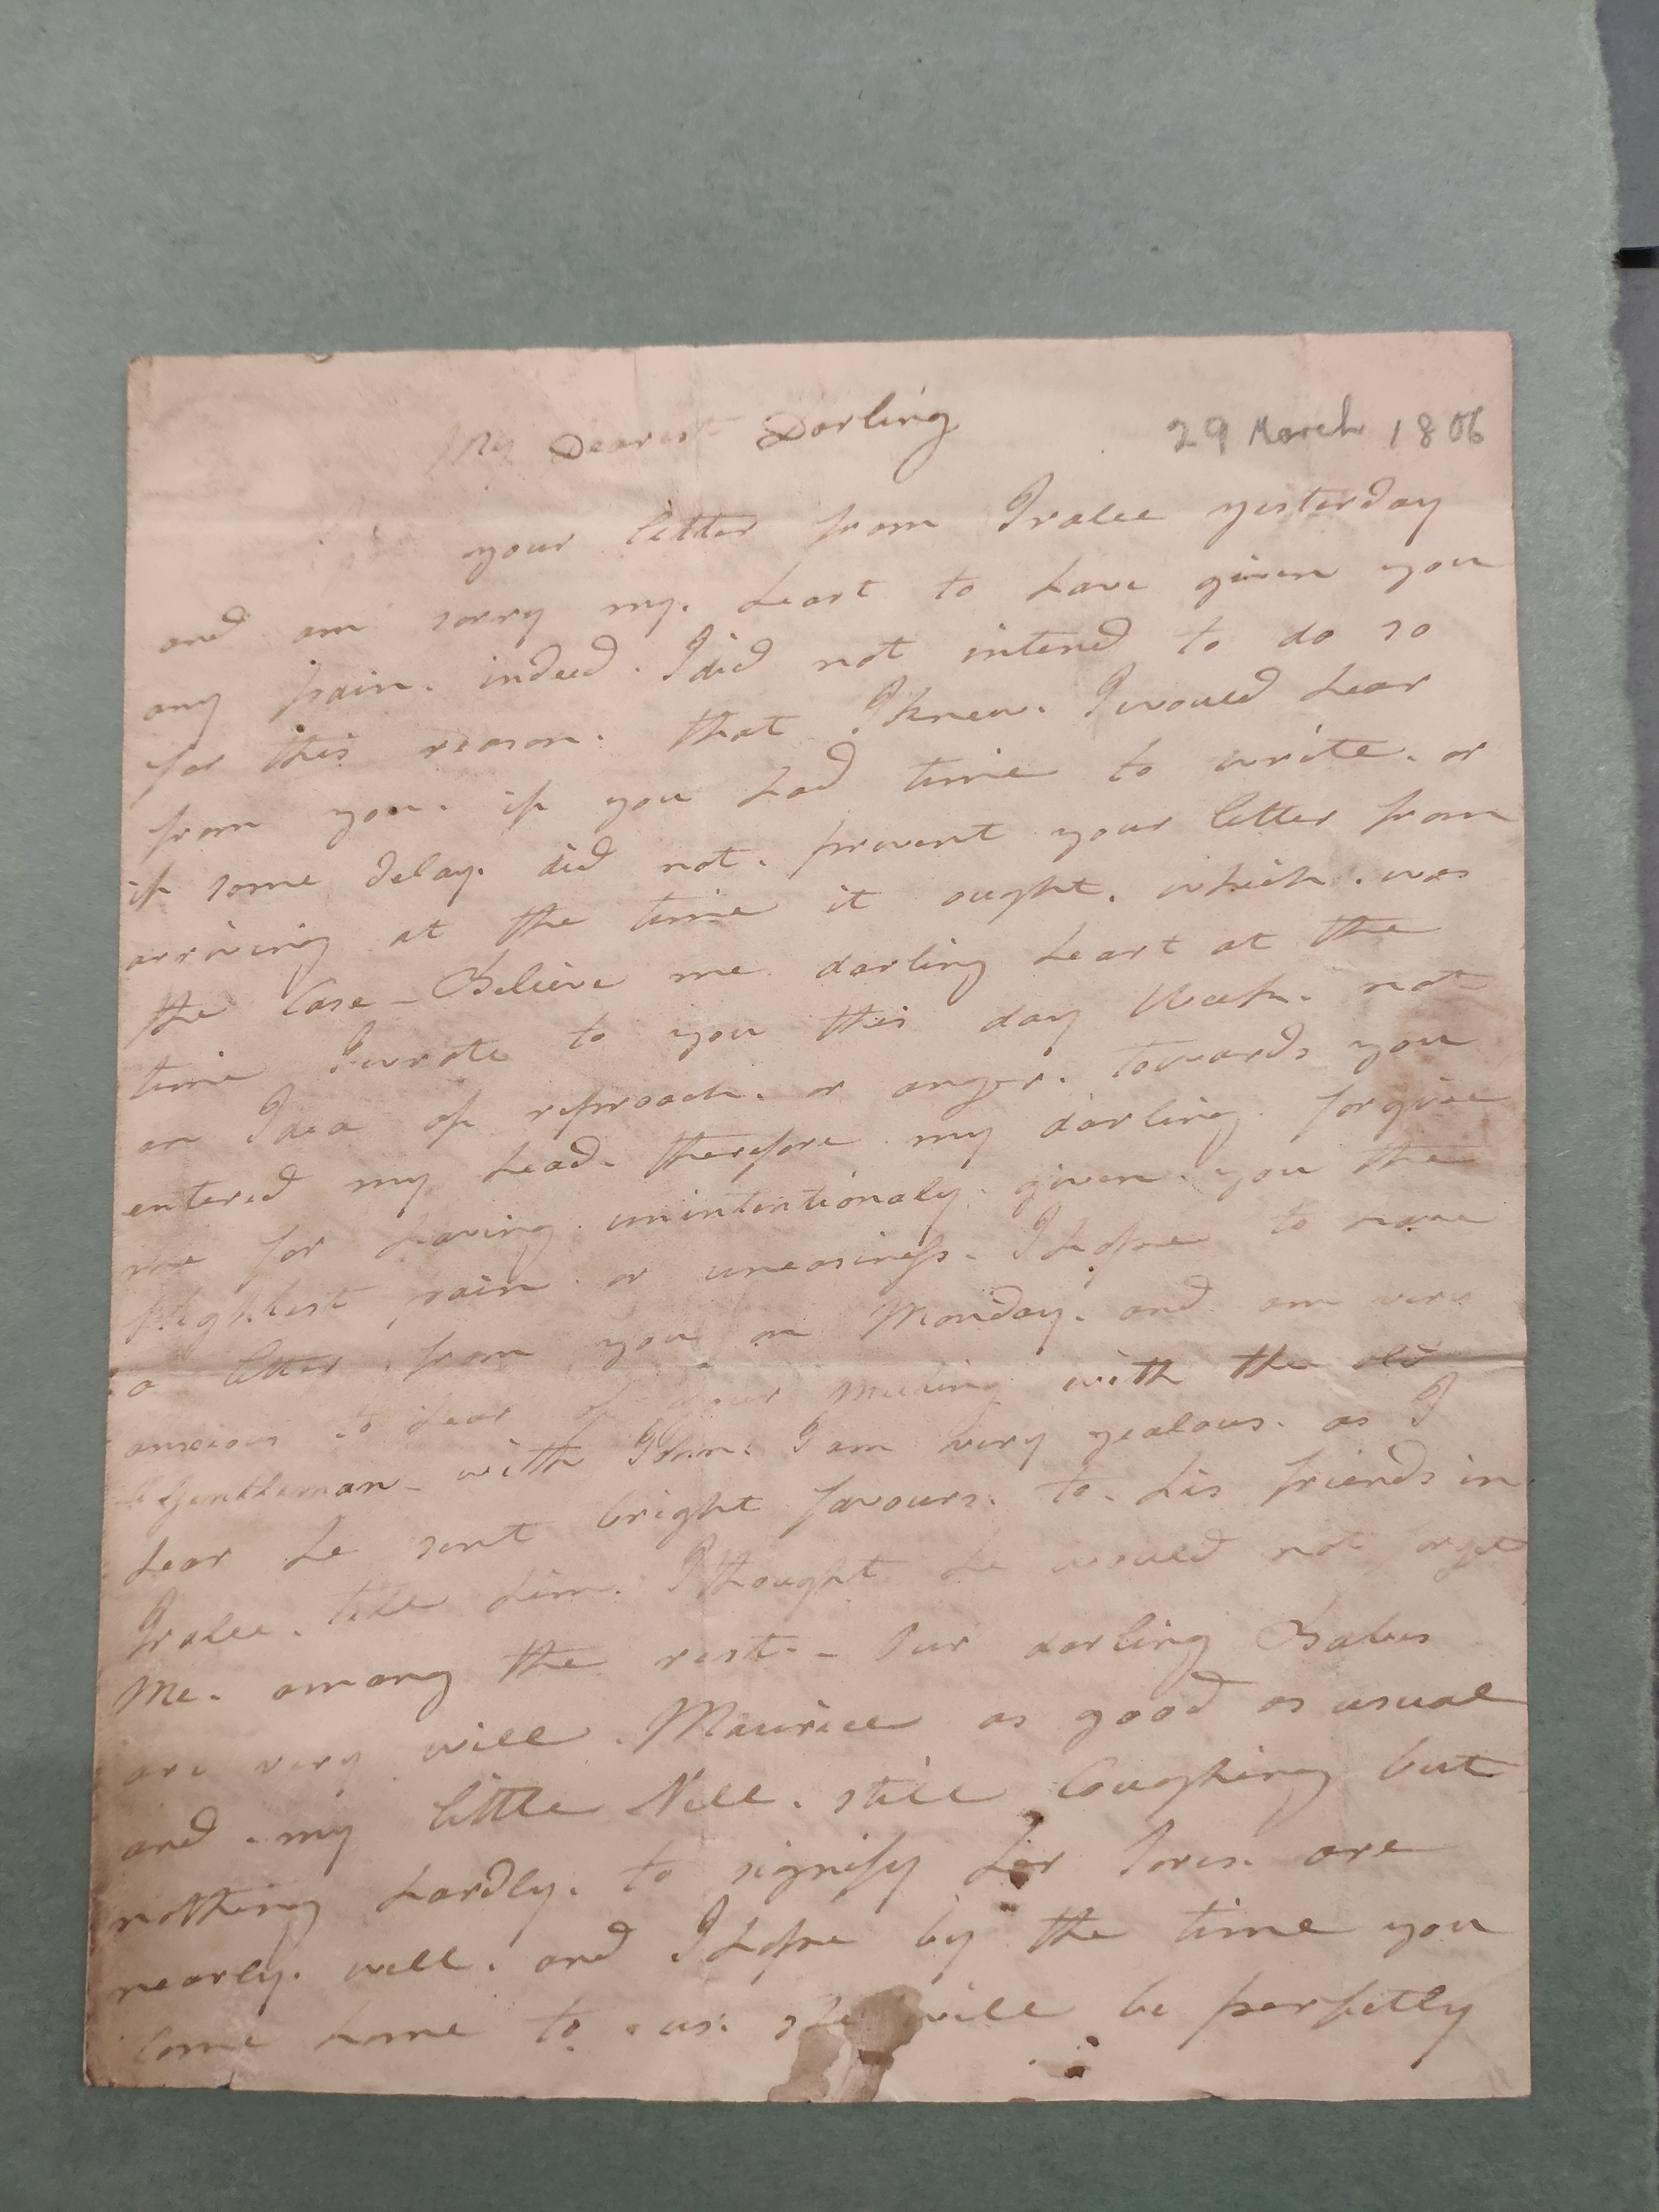 My Dearest Darling
29 March 1806
your letter from Tralee yesterday
and am sorry my. heart to have given you
any pain. indeed. I did not intend to do so
for this reason. that I knew. I would hear
from you. if you had time to write. or
if some delay. did not. prevent your letter from
arriving at the time it ought. which. was
the Case - Believe me darling heart at the
time I wrote to you this day Week. not
an Idea of reproach. or anger. towards you
entered my head. therefore my darling forgive
me for having unintentionaly. given you the
slightest pain or uneasiness. I hope to have
a letter from you on Monday. and am very
anxious to hear of your meeting with the old
Gentleman - with John. I am very jealous. as I
hear he sent bright favours. to. his friends in
Tralee. tell him. I thought he would not forget
Me. among the rest. - Our darling Babes
are very well. Maurice as good as usual
and. my little Nell. still Coughing but
nothing hardly. to signify her Sores. are
nearly. well. and I hope by the time you
Come home to us. she will be perfectly